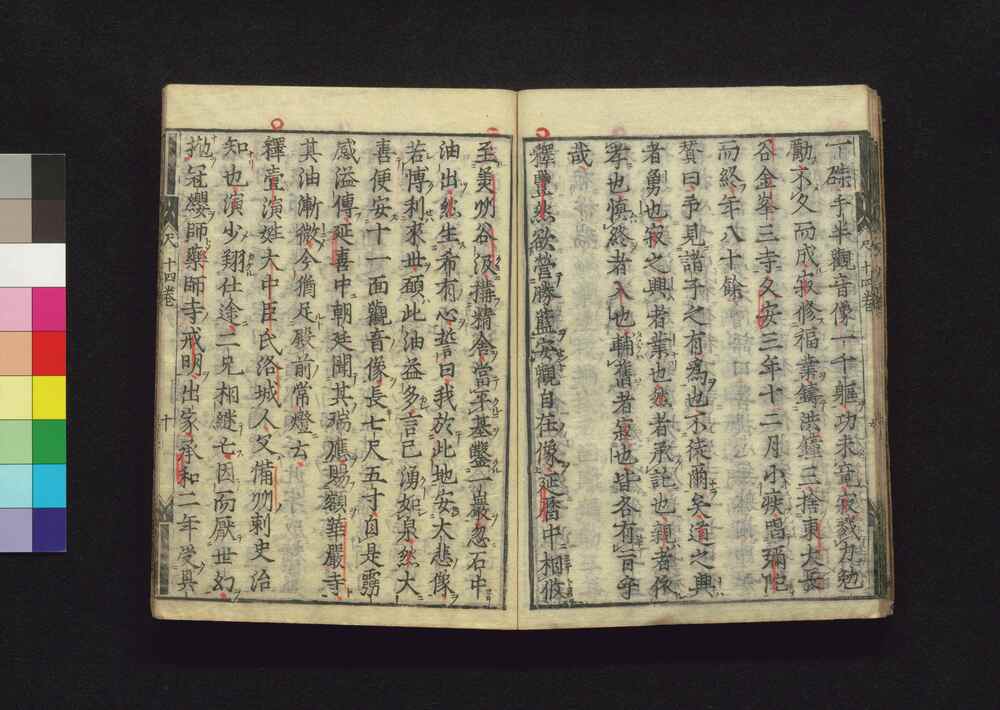 磔手半觀音像一千軀功未竟寂戮力勉
勵不久而成寂修福業鑄洪鐘三捨東大長
谷金峯三寺久安三年十二月小疾唱彌陀
而終年八十餘
贊曰予見諸子之有爲也不徒爾矣道之興
者勇也寂之興者業也然者承託也親者係
孝也慎終者入也輔舊者寂也皆各有旨乎
哉
釋豐然欲營勝藍安觀自在像延曆中相攸
至美州谷汲搆精舍當平基鑿一巖忽石中
油出然生希有心誓曰我於此地安大悲像
若博利來世願此油益多言已湧如泉然大
喜便安十一面觀音像長七尺五寸自是靈
感溢傳延喜中朝廷聞其瑞應賜額華嚴寺
其油漸微今猶足殿前常燈云
釋壹演姓大中臣氏洛城人父備州刺史治
知也演少翔仕途二兄相繼亡因而厭世幻
抛冠纓師藥師寺戒明出家承和二年受具
十四卷 十